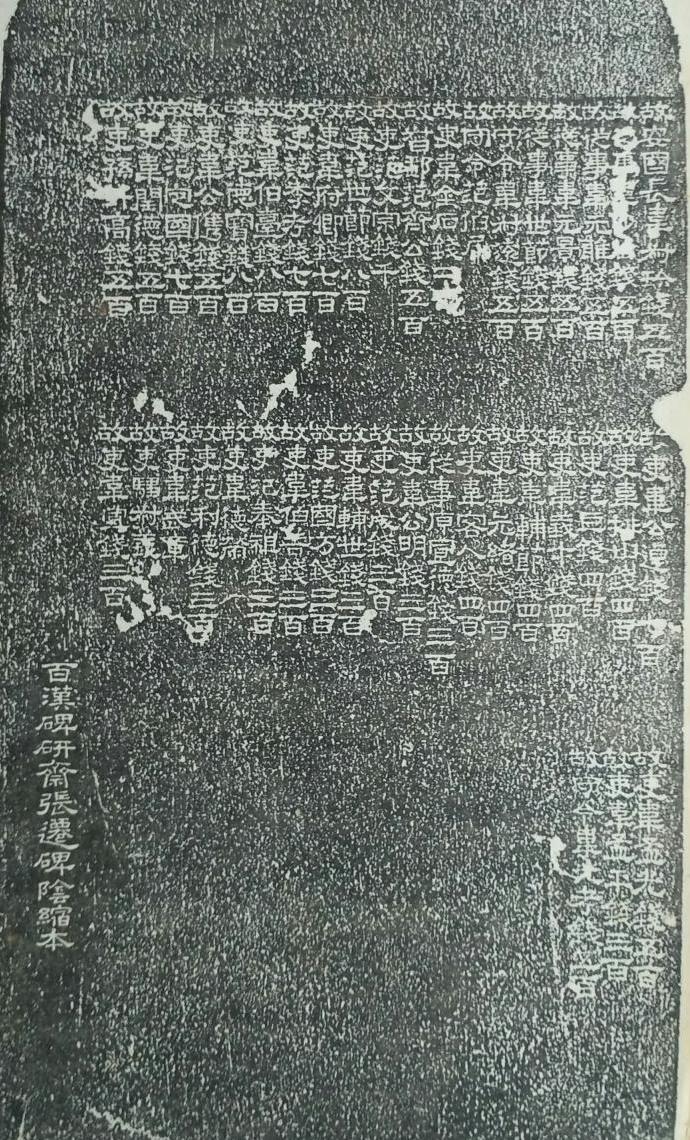 故安國長韋叔珍錢五百
故從事韋錢五百
故從事韋元雅錢五百
故從事韋元景錢五百
故從事韋世節錢五百
故守令韋叔遠錢五百
故守令范伯犀
故吏韋金石錢二百
故督郵范齊公錢五百
故吏范文宗錢千
故吏范世節錢八百
故吏韋府卿錢七百
故吏范季考錢七百
故吏韋伯臺錢八百
故吏范德寶錢八百
故吏韋公僬錢五百
故吏氾定國錢七百
故吏韋閏德錢五百
故吏孫升高錢五百
故吏韋公逴錢百
故吏韋排山錢四百
故吏范巨錢四百
故吏韋義才錢四百
故吏韋輔節錢四百
故吏韋元緒錢四百
故吏韋客人錢四百
故從事原宣德錢三百
故吏韋公明錢三百
故吏范成錢三百
故吏韋輔世錢三百
故吏范國方錢三百
故吏韋伯善錢三百
故吏范奉祖錢三百
故吏韋德榮
故吏范利德錢三百
故吏韋武章
故吏騶叔
故吏韋宣錢三百
故吏韋孟光錢五百
故吏韋孟平錢三百
故守令韋元考錢五百
百漢碑研齋張遷碑陰縮本